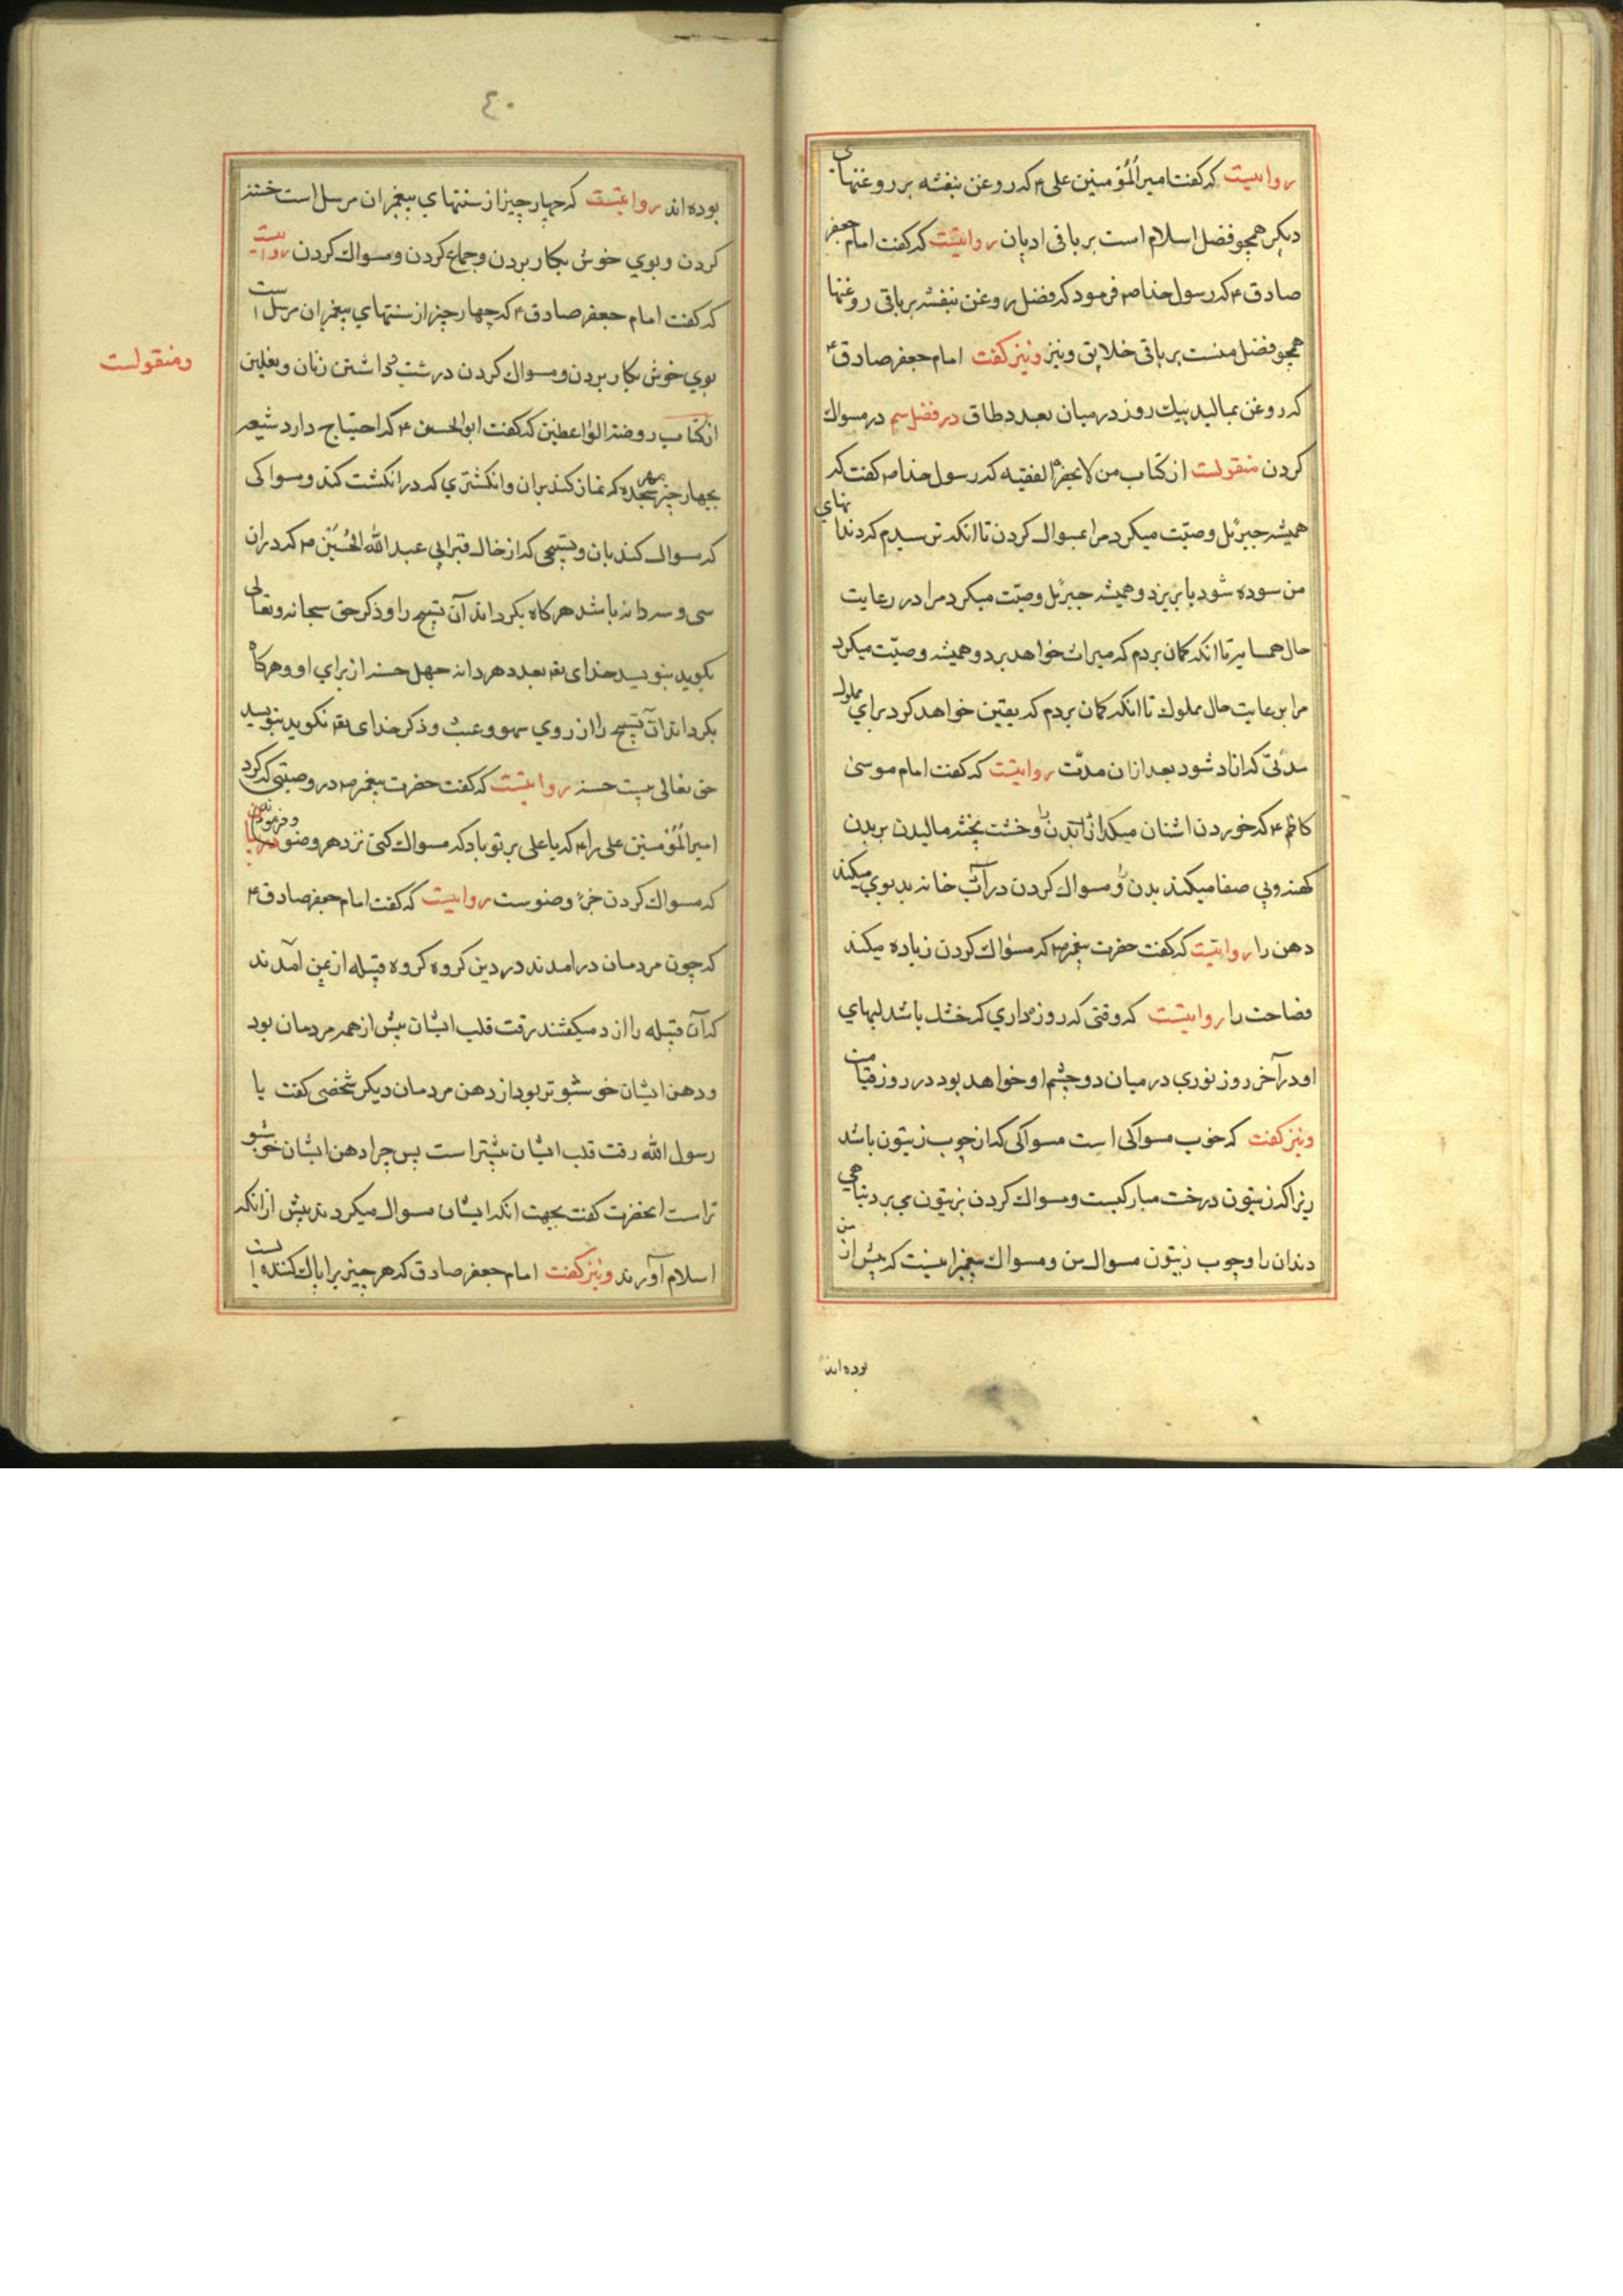 روایتست که گفت امیرالمؤمنین علی ۴ که روغن بنفشه بر روغنهای
دیگر همچو فضل اسلام است بر باقی ادیان روایتست که گفت امام جعفر
صادق ۴ که رسول خدا ص فرمود که فضل روغن بنفشه بر باقی روغنها
همچو فضل منست بر باقی خلایق ونیز ونیز کفت امام جعفر صادق ۴
که روغن بمالید بیك روز درمیان بعدد طاق در فصل سم در مسواك
کردن منقولست از کتاب من لا یحضره الفقیه که رسول خدا ص کفت که
همیشه جبرئیل وصیّت میکرد مرا بمسواك کردن تا انکه ترسیدم که دندانهای
من سوده شود یا بریزد و همیشه جبرئیل وصیّت میکرد مرا در رعایت
حال همسایه تا انکه کمان بردم که میراث خواهد برد و همیشه وصیّت میکرد
مرا برعایت حال مملوك تا انکه کمان بردم که یقین خواهد کرد برای مملوك
مدتی که ازاد شود بعد ازان مدّت روایتست که کفت امام موسی
کاظم ۴ که خوردن اشنان میکدازاند بدن را وخشت پخته مالیدن بر بدن
کهنه وبی صفا میکند بدن را ومسواك کردن در آب خانه بدبوی میکند
دهن را روایتست که کفت حضرت پیغمبر ص که مسواك کردن زیاده میکند
فصاحت را روایتست که وقتی که روزه داری که خشك باشد لبهای
او در آخر روز نوری در میان دو چشم او خواهد بود در روز قیامت
ونیز کفت که خوب مسواکی است مسواکی که از چوب زیتون باشد
زیرا که زیتون درخت مبارکیست ومسواك کردن بزیتون می برد تباهی
دندان را وچوب زیتون مسواك من ومسواك پیغمبرانیست که پیش از من
بوده اند
٤٠
بوده اند روایتست که چهار چیز از سنتهای پیغمبران مرسل است ختنه
کردن وبوی خوش بکار بردن وجماع کردن ومسواك کردن روایتست
که کفت امام جعفر صادق ۴ که چهار چیز از سنتهای پیغمبران مرسل است
بوی خوش بکار بردن ومسواك کردن داشتن زنان
ومنقولست
از کتاب روضة الواعظین که کفت ابوالحسن ۴ که احتیاج دارد شیعه
بچهار چیز مهر سجده که نماز کند بران وانکشتری که در انکشت کند ومسواکی
که مسواك کند بان وتسبیحی که از خاك قبر ابی عبد الله الحُسَین ص که دران
سی وسه دانه باشد هر کاه بکرداند آن تسبیح را وذکر حق سبحانه وتعالی
بکوید بنویسد خدای تعه بعدد هر دانه چهل حسنه از برای او وهر کاه
بکرداند آن تسبیح را از روی سهو وعبث وذکر خدای تعه نکوید بنویسد
حق تعالی بیست حسنه روایتست که کفت حضرت پیغمبر ص در وصیتی که کرد
امیرالمُؤمنین علی را ۴ که یا علی بر تو باد که مسواك کنی نزد هر وضو
که مسواك کردن جزء وضوست روایتست که کفت امام جعفر صادق ۴
که چون مردمان درامدند در دین کروه کروه قبیله از یمن آمدند
که آن قبیله را ازد میکفتند رقت قلب ایشان بیش از همه مردمان بود
ودهن ایشان خوشبوتر بود از دهن مردمان دیکر شخصی کفت یا
رسول الله رقت قلب ایشان بیشتر است پس چرا دهن ایشان خوشبو
تر است انحضرت کفت بجهت انکه ایشان مسواك میکردند پیش ازانکه
اسلام آورند ونیز کفت امام جعفر صادق که هر چیز را پاك کننده است